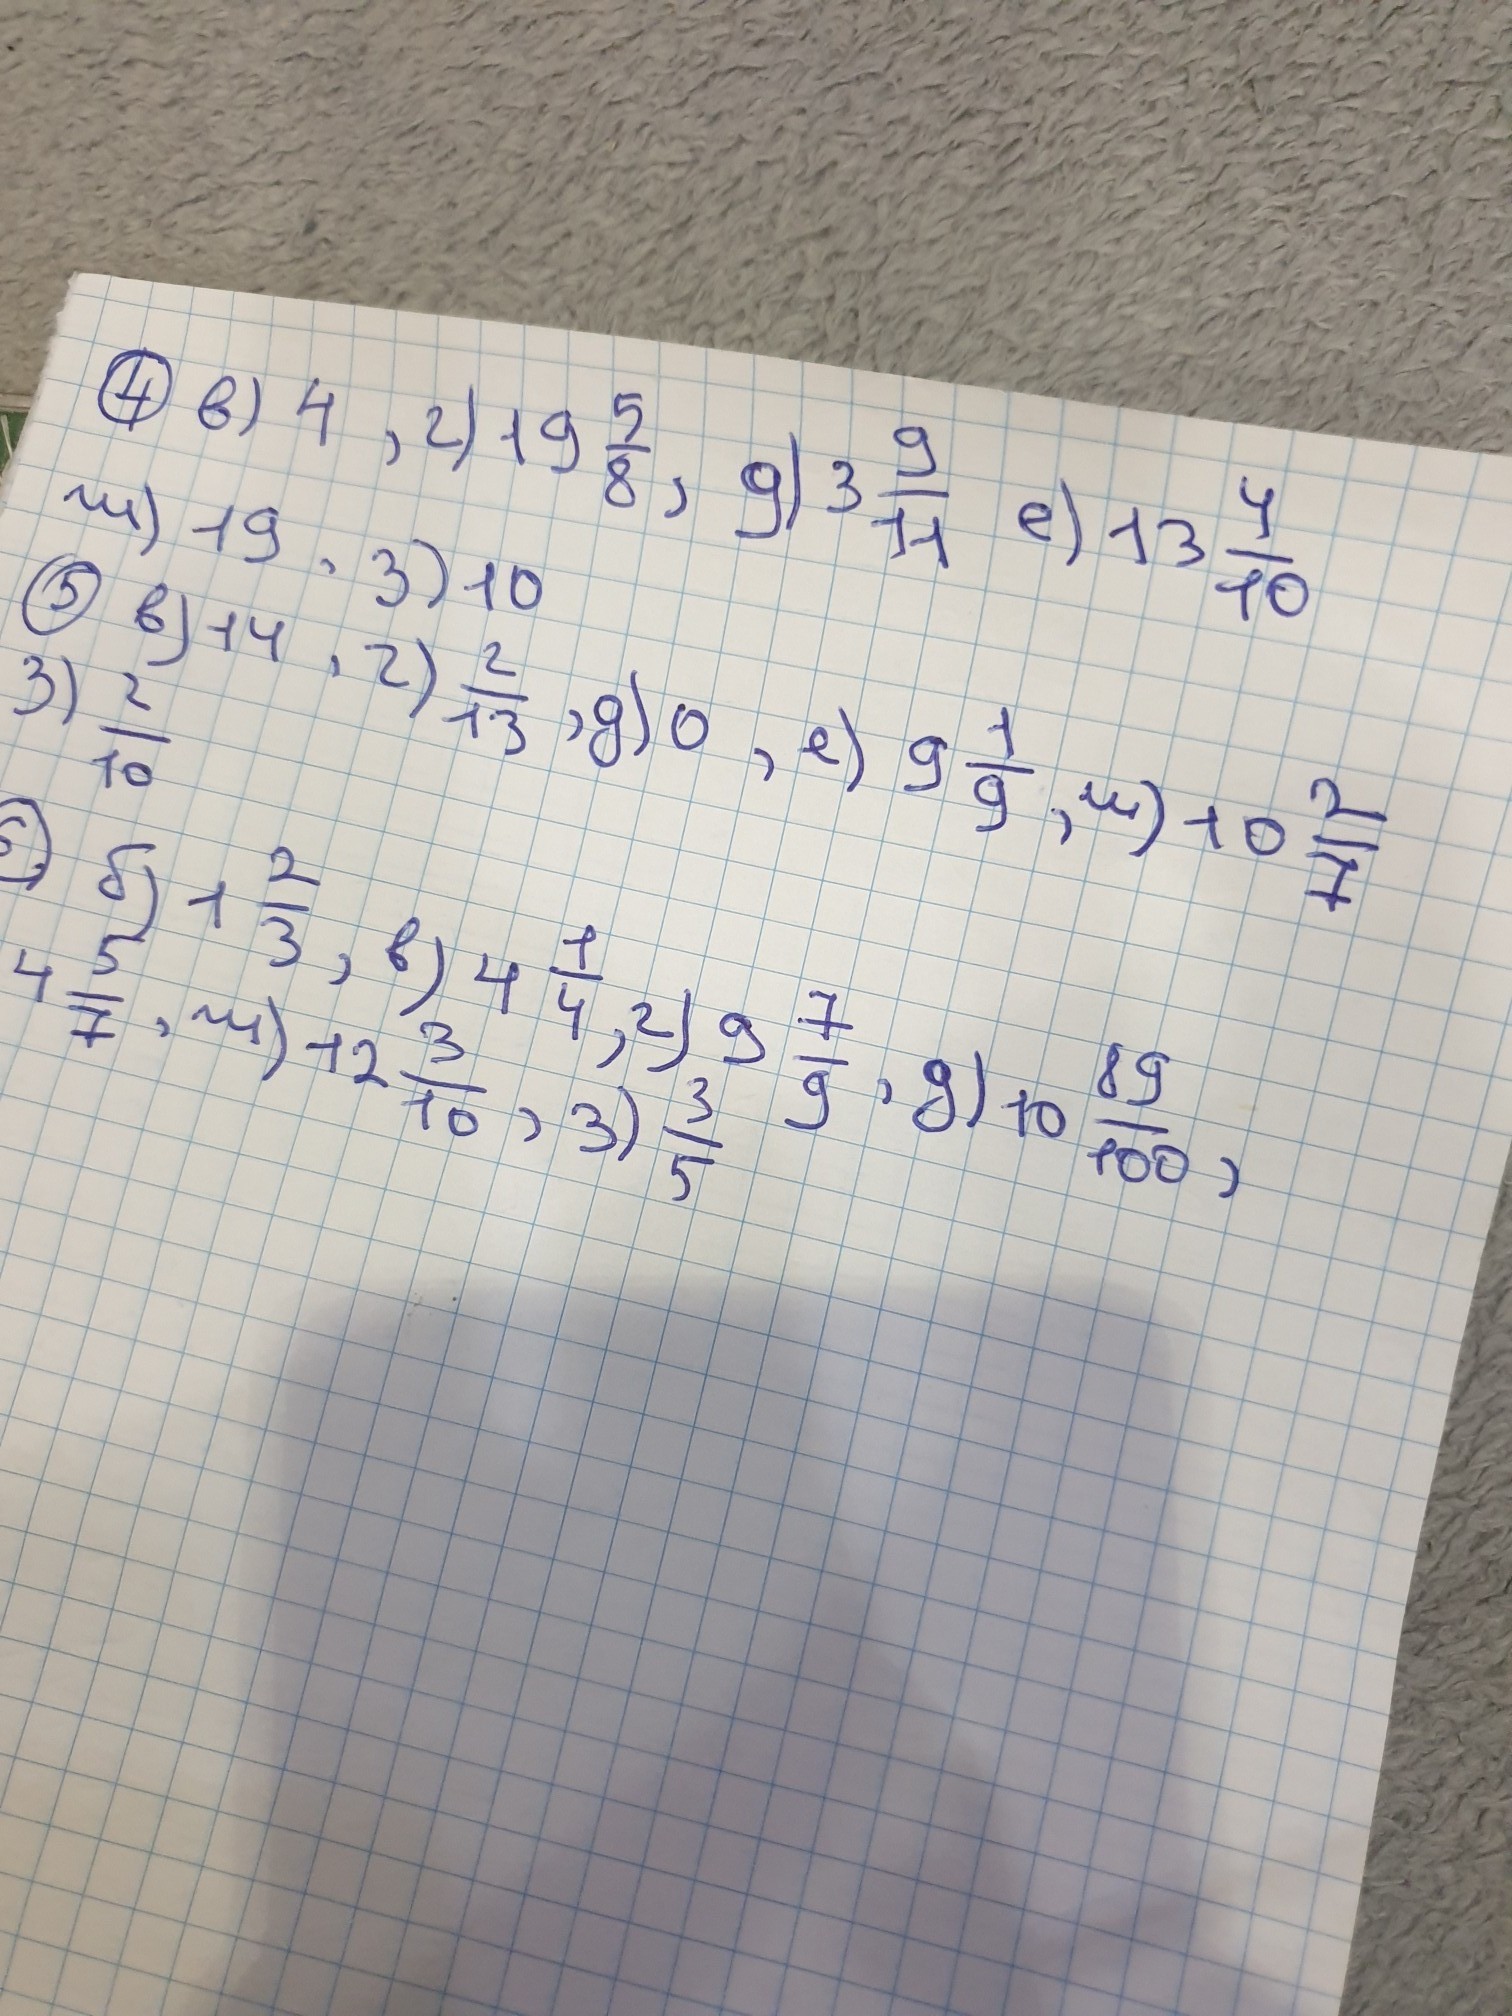 ④ в) 4 , г) 19 5/8 , д) 3 9/11 е) 13 4/10
ж) 19 , з) 10
⑤ в) 14 , г) 2/13 , д) 0 , е) 9 1/9 , ж) 10 2/7
з) 2/10
б) 1 2/3 , в) 4 1/4 , г) 9 7/9 , д) 10 89/100 ,
4 5/7 , ж) 12 3/10 , з) 3/5